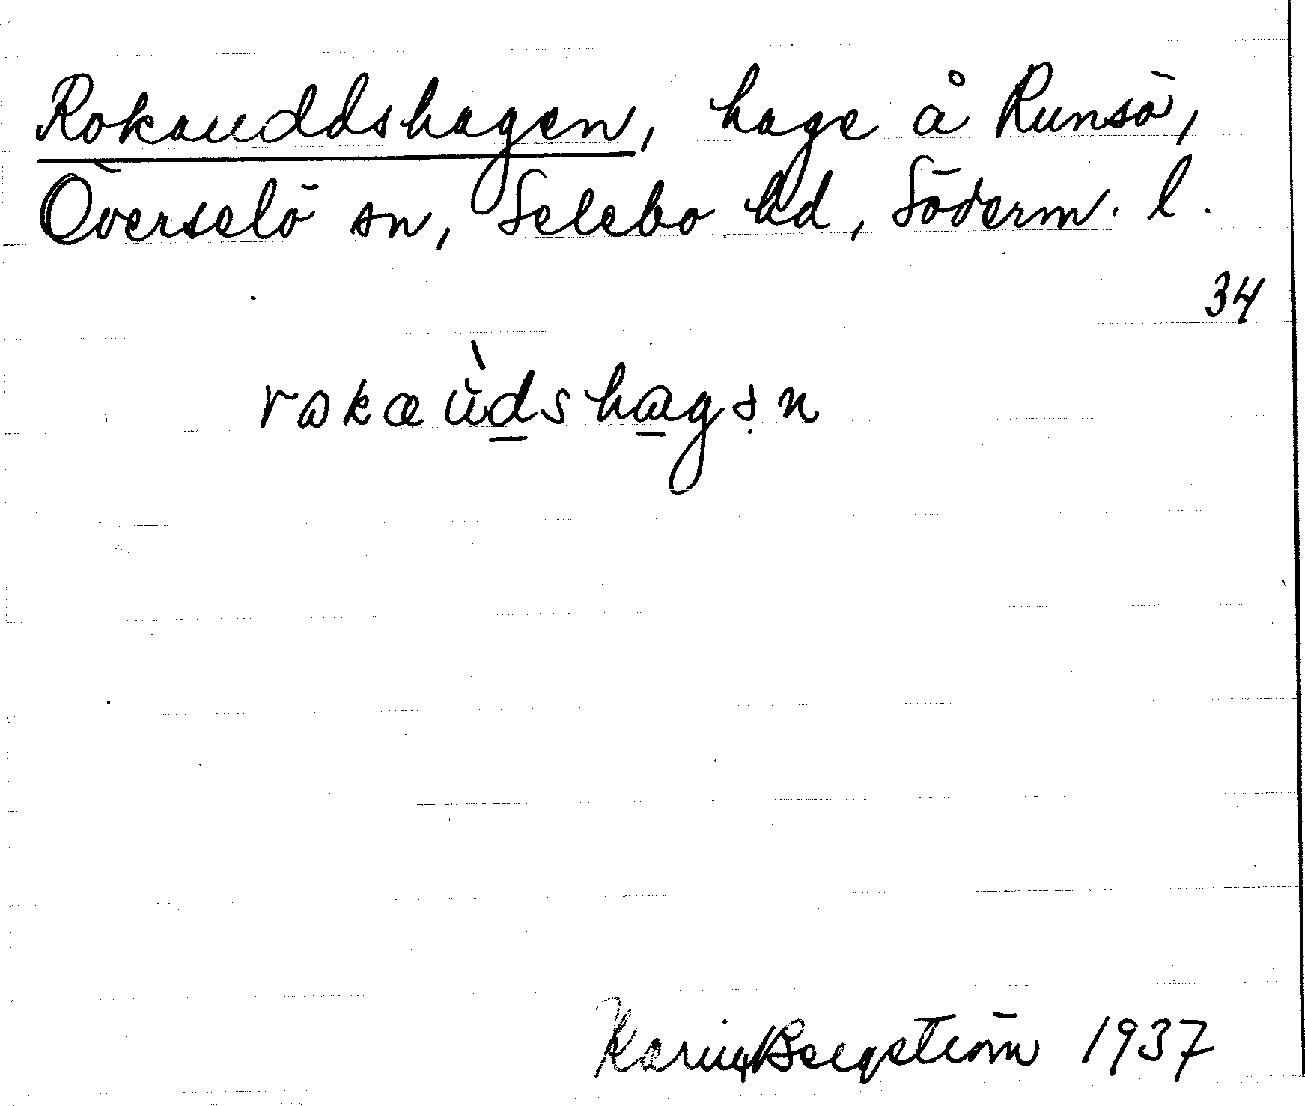 Rokauddshagen, hage å Runsö,
Överselö sn, Selebo hd, Söderm. l.
34
rokaùdshagən
Karin Bergström 1937